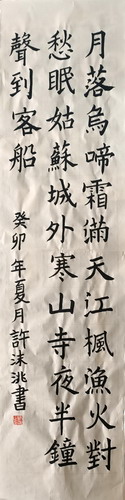 月落烏啼霜滿天江楓漁火對
愁眠姑蘇城外寒山寺夜半鐘
聲到客船
癸卯年夏月許沫洮書